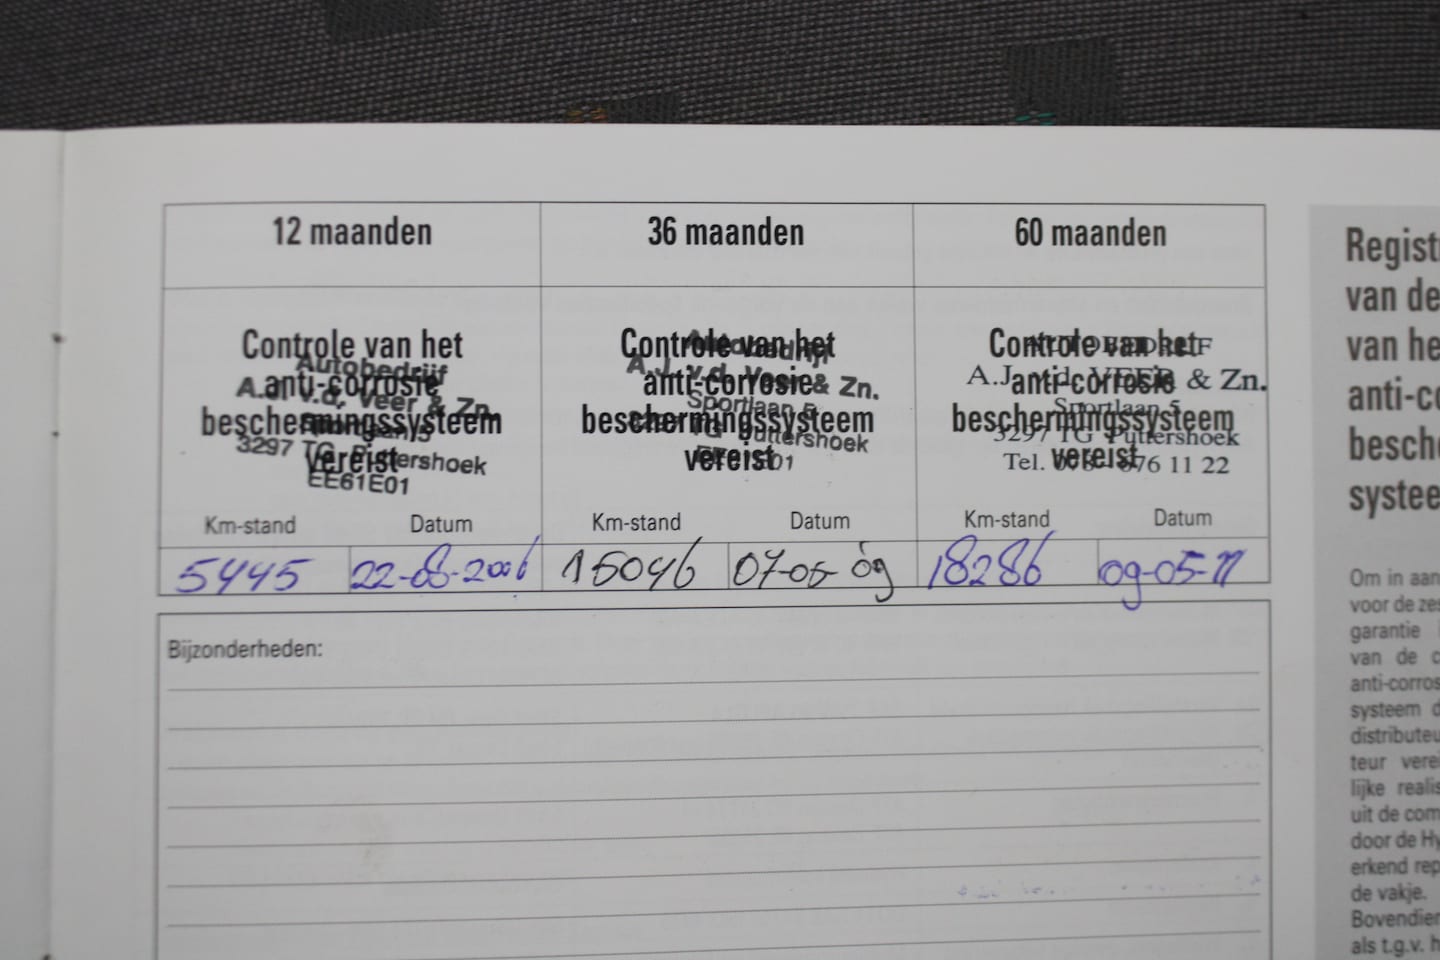 12 maanden
36 maanden
60 maanden
Controle van het
anti-corrosie
beschermingssysteem
vereist
Autobedrijf
A.J. v.d. Veer & Zn.
Sportlaan 5
3297 TG Puttershoek
EE61E01
Controle van het
anti-corrosie
beschermingssysteem
vereist
Autobedrijf
A.J. v.d. Veer & Zn.
Sportlaan 5
TG Puttershoek
Controle van het
anti-corrosie
beschermingssysteem
vereist
AUTOBEDRIJF
A.J. v.d. VEER & Zn.
Sportlaan 5
3297 TG Puttershoek
Tel. 676 11 22
Km-stand Datum
Km-stand Datum
Km-stand Datum
5445 22-08-2006
15046 07-05-09
18286 09-05-11
Bijzonderheden:
Regist
van de
van he
anti-co
besche
systee
Om in aan
voor de zes
garantie
van de c
anti-corros
systeem d
distributeu
teur verei
lijke realis
uit de com
door de Hy
erkend rep
de vakje.
Bovendier
als t.g.v. h